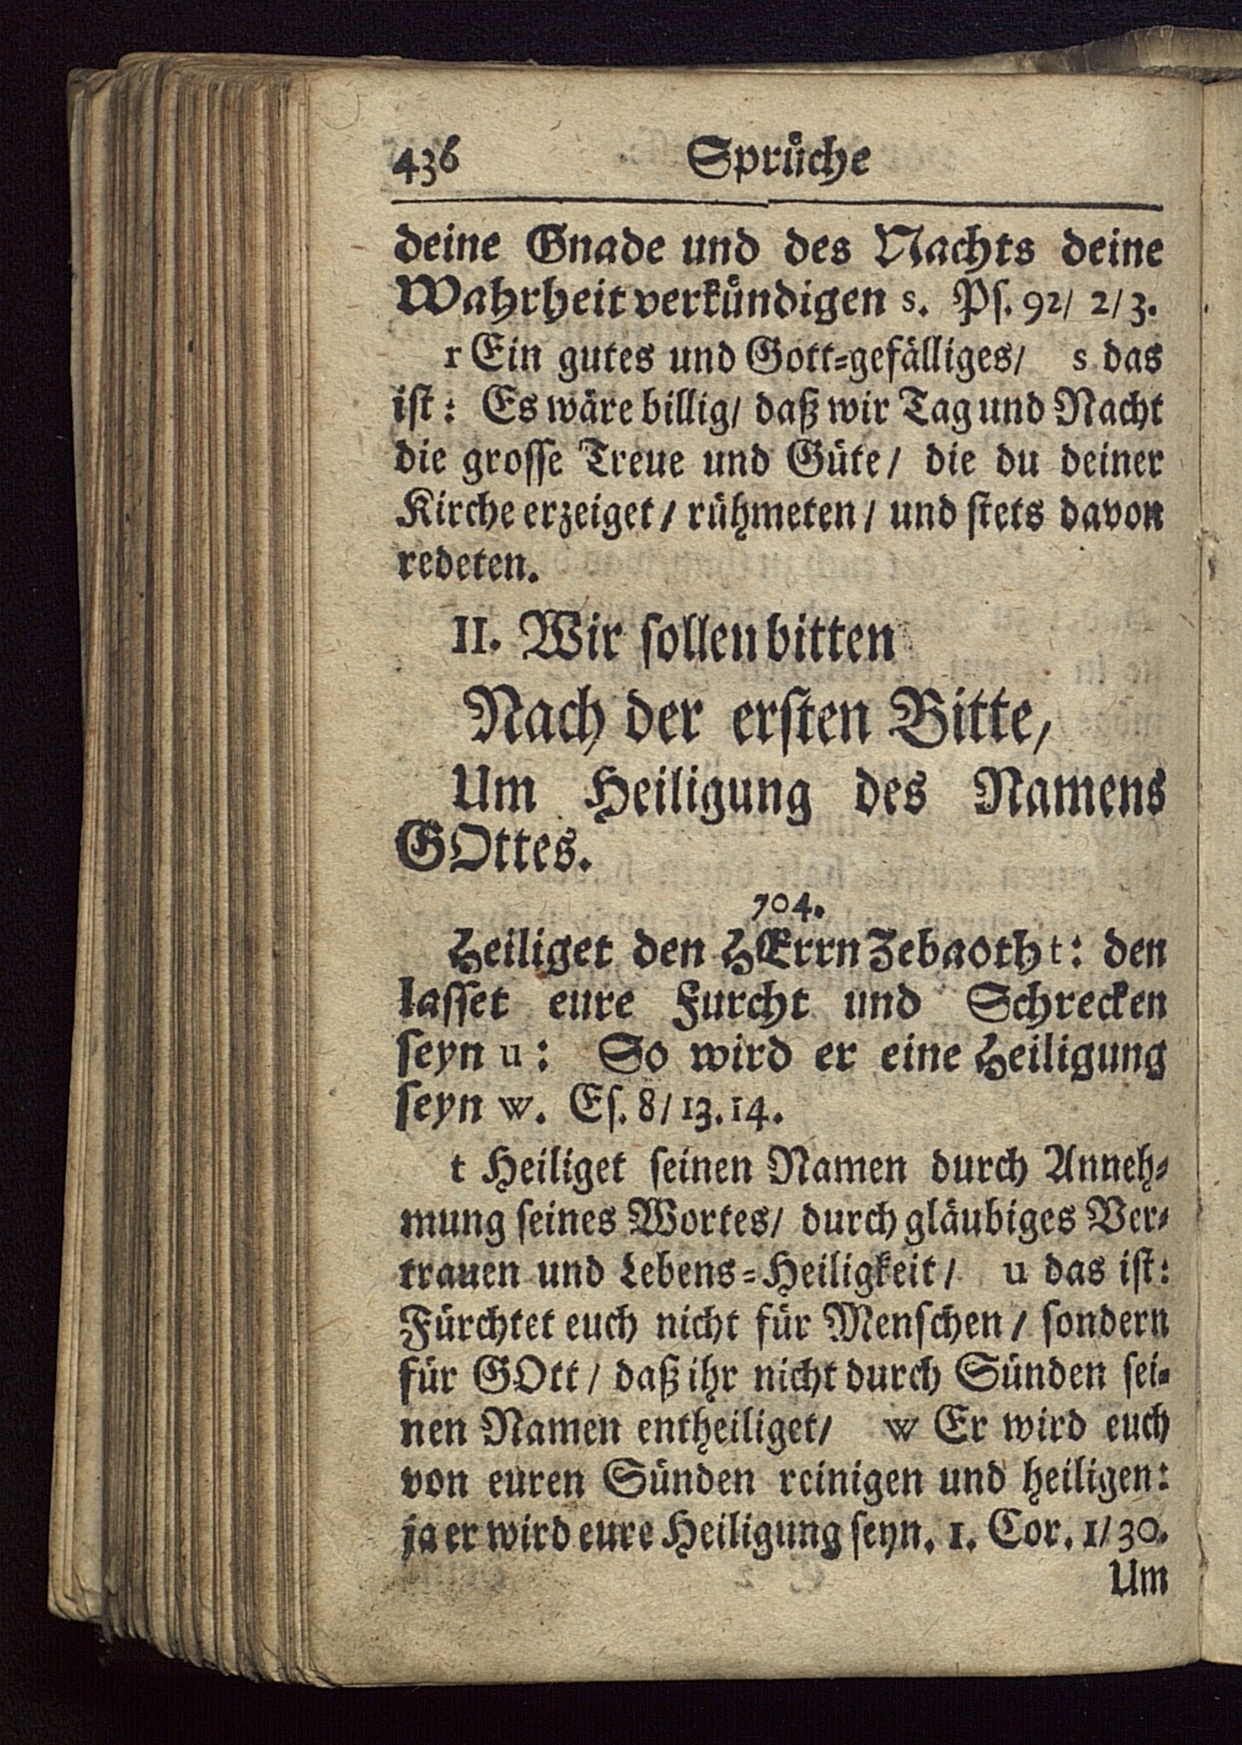 436 Sprüche
deine Gnade und des Nachts deine
Wahrheit verkündigen s. Ps. 92/ 2/3.
r Ein gutes und Gott-gefälliges/ s das
ist: Es wäre billig/ daß wir Tag und Nacht
die grosse Treue und Güte/ die du deiner
Kirche erzeiget/ rühmeten/ und stets davon
redeten.
II. Wir sollen bitten
Nach der ersten Bitte,
Um Heiligung des Namens
GOttes.
704.
Heiliget den HErrn Zebaoth t: den
lasset eure Furcht und Schrecken
seyn u: So wird er eine Heiligung
seyn w. Es. 8/ 13. 14.
t Heiliget seinen Namen durch Anneh-
mung seines Wortes/ durch gläubiges Ver-
trauen und Lebens-Heiligkeit/ u das ist:
Fürchtet euch nicht für Menschen/ sondern
für GOtt/ daß ihr nicht durch Sünden sei-
nen Namen entheiliget/ w Er wird euch
von euren Sünden reinigen und heiligen:
ja er wird eure Heiligung seyn. 1. Cor. 1/30.
Um